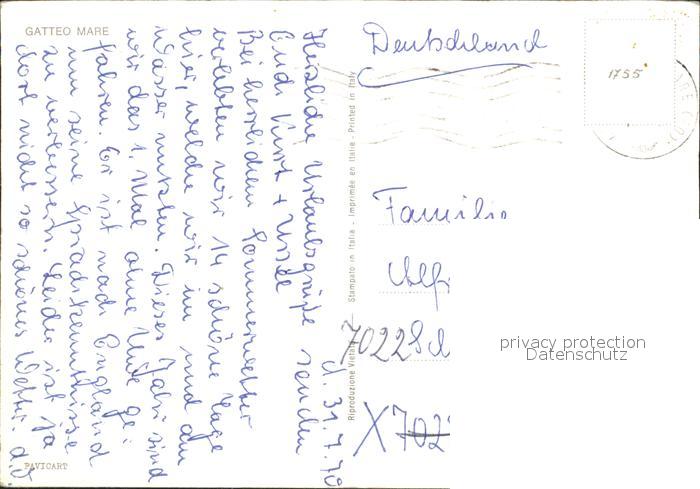 GATTEO MARE
d. 31.7.70
Herzliche Urlaubsgrüße senden
Euch Kurt +
Bei herrlichem Sommerwetter
verlebten wir 14 schöne Tage
hier, welche wir im und am
Wasser nutzten. Dieses Jahr sind
wir das 1. Mal ohne Uwe ge-
fahren. Er ist nach England
um seine Sprachkenntnisse
zu verbessern. Leider ist ja
dort nicht so schönes Wetter. d.O
PAVICART
Riproduzione Vietata — Stampato in Italia - Imprimée en Italie - Printed in Italy
Deutschland
1755
Familie
Alfr
7022
X 702
privacy protection
Datenschutz